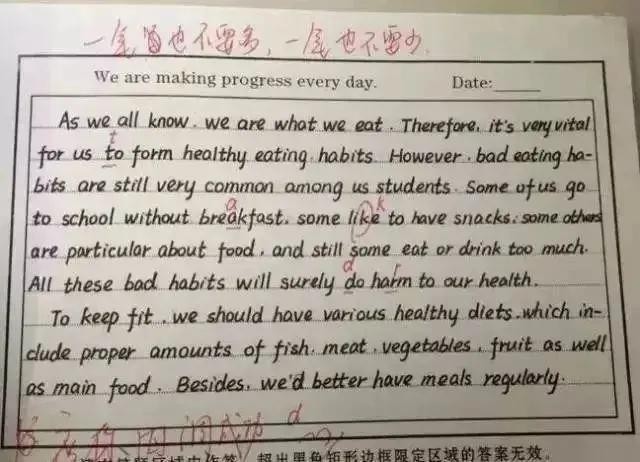 一定也不要多，一定也不要少.
We are making progress every day. Date:
As we all know, we are what we eat. Therefore, it's very vital
t
for us to form healthy eating habits. However, bad eating ha-
bits are still very common among us students. Some of us go
a k
to school without breakfast, some like to have snacks, some others
are particular about food, and still some eat or drink too much.
d r
All these bad habits will surely do harm to our health.
To keep fit, we should have various healthy diets, which in-
clude proper amounts of fish, meat, vegetables, fruit as well
as main food. Besides, we'd better have meals regularly.
成功 d
超出黑色矩形边框限定区域的答案无效。